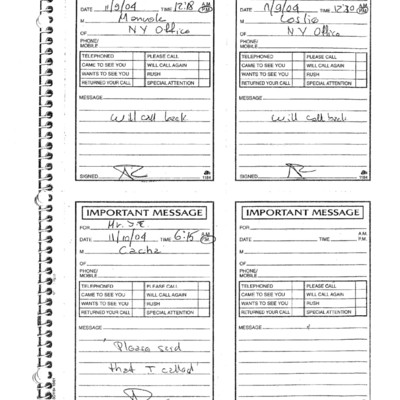 DATE 11/9/04 TIME 12:18 A.M. P.M.
M Manuela
OF NY Office
PHONE/
MOBILE
TELEPHONED PLEASE CALL
CAME TO SEE YOU WILL CALL AGAIN
WANTS TO SEE YOU RUSH
RETURNED YOUR CALL SPECIAL ATTENTION
MESSAGE
Will call back
SIGNED
1184
DATE 11/9/04 TIME 12:30 A.M. P.M.
M Leslie
OF NY Office
PHONE/
MOBILE
TELEPHONED PLEASE CALL
CAME TO SEE YOU WILL CALL AGAIN
WANTS TO SEE YOU RUSH
RETURNED YOUR CALL SPECIAL ATTENTION
MESSAGE
Will call back
SIGNED
1184
IMPORTANT MESSAGE
FOR Mr. J.E.
DATE 11/10/04 TIME 6:15 A.M. P.M.
M Cacha
OF
PHONE/
MOBILE
TELEPHONED PLEASE CALL
CAME TO SEE YOU WILL CALL AGAIN
WANTS TO SEE YOU RUSH
RETURNED YOUR CALL SPECIAL ATTENTION
MESSAGE
'Please said
that I called'
IMPORTANT MESSAGE
FOR
DATE TIME A.M. P.M.
M
OF
PHONE/
MOBILE
TELEPHONED PLEASE CALL
CAME TO SEE YOU WILL CALL AGAIN
WANTS TO SEE YOU RUSH
RETURNED YOUR CALL SPECIAL ATTENTION
MESSAGE